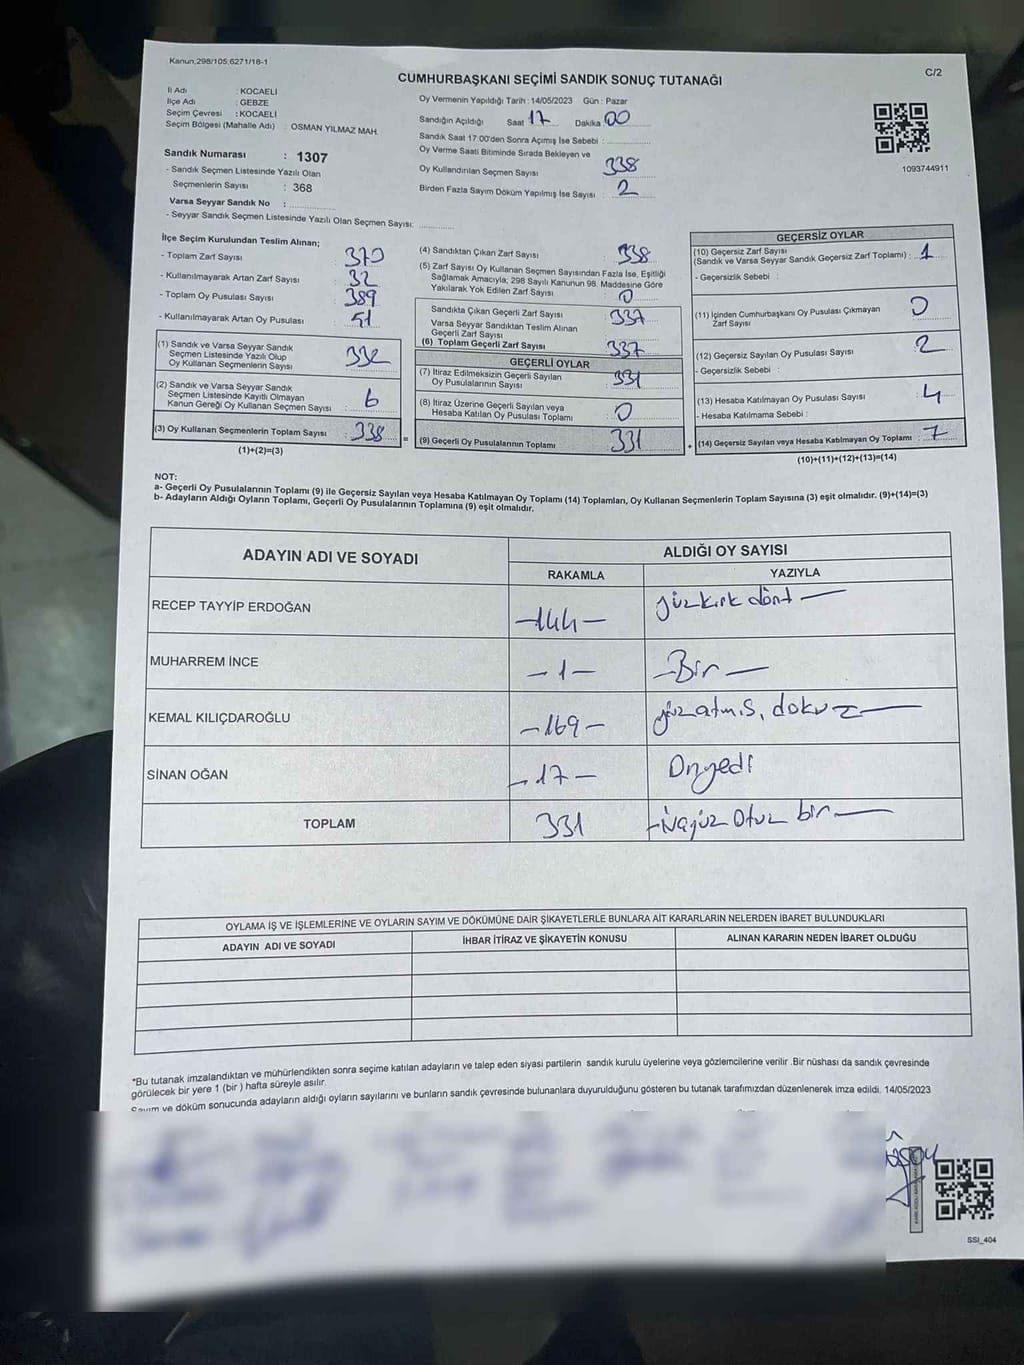 Kanun,298/105,6271/18-1
C/2
CUMHURBAŞKANI SEÇİMİ SANDIK SONUÇ TUTANAĞI
İl Adı : KOCAELİ
İlçe Adı : GEBZE
Seçim Çevresi : KOCAELİ
Seçim Bölgesi (Mahalle Adı) : OSMAN YILMAZ MAH.
Sandık Numarası : 1307
- Sandık Seçmen Listesinde Yazılı Olan
Seçmenlerin Sayısı : 368
Varsa Seyyar Sandık No :
- Seyyar Sandık Seçmen Listesinde Yazılı Olan Seçmen Sayısı:
Oy Vermenin Yapıldığı Tarih : 14/05/2023 Gün : Pazar
Sandığın Açıldığı Saat 17 Dakika 00
Sandık Saat 17:00'den Sonra Açımış İse Sebebi :
Oy Verme Saati Bitiminde Sırada Bekleyen ve
Oy Kullandırılan Seçmen Sayısı 338
Birden Fazla Sayım Döküm Yapılmış İse Sayısı : 2
1093744911
İlçe Seçim Kurulundan Teslim Alınan;
- Toplam Zarf Sayısı 370
- Kullanılmayarak Artan Zarf Sayısı : 32
- Toplam Oy Pusulası Sayısı 389
- Kullanılmayarak Artan Oy Pusulası : 51
(1) Sandık ve Varsa Seyyar Sandık
Seçmen Listesinde Yazılı Olup
Oy Kullanan Seçmenlerin Sayısı 332
(2) Sandık ve Varsa Seyyar Sandık
Seçmen Listesinde Kayıtlı Olmayan
Kanun Gereği Oy Kullanan Seçmen Sayısı : 6
(3) Oy Kullanan Seçmenlerin Toplam Sayısı : 338
(1)+(2)=(3)
(4) Sandıktan Çıkan Zarf Sayısı : 338
(5) Zarf Sayısı Oy Kullanan Seçmen Sayısından Fazla İse, Eşitliği
Sağlamak Amacıyla, 298 Sayılı Kanunun 98. Maddesine Göre
Yakılarak Yok Edilen Zarf Sayısı : 0
Sandıkta Çıkan Geçerli Zarf Sayısı : 337
Varsa Seyyar Sandıktan Teslim Alınan
Geçerli Zarf Sayısı
(6) Toplam Geçerli Zarf Sayısı : 337
GEÇERLİ OYLAR
(7) İtiraz Edilmeksizin Geçerli Sayılan
Oy Pusulalarının Sayısı : 331
(8) İtiraz Üzerine Geçerli Sayılan veya
Hesaba Katılan Oy Pusulası Toplamı : 0
(9) Geçerli Oy Pusulalarının Toplamı : 331
=
+
GEÇERSİZ OYLAR
(10) Geçersiz Zarf Sayısı
(Sandık ve Varsa Seyyar Sandık Geçersiz Zarf Toplamı) : 1
- Geçersizlik Sebebi :
(11) İçinden Cumhurbaşkanı Oy Pusulası Çıkmayan
Zarf Sayısı : 0
(12) Geçersiz Sayılan Oy Pusulası Sayısı : 2
- Geçersizlik Sebebi :
(13) Hesaba Katılmayan Oy Pusulası Sayısı : 4
- Hesaba Katılmama Sebebi :
(14) Geçersiz Sayılan veya Hesaba Katılmayan Oy Toplamı : 7
(10)+(11)+(12)+(13)=(14)
NOT:
a- Geçerli Oy Pusulalarının Toplamı (9) ile Geçersiz Sayılan veya Hesaba Katılmayan Oy Toplamı (14) Toplamları, Oy Kullanan Seçmenlerin Toplam Sayısına (3) eşit olmalıdır. (9)+(14)=(3)
b- Adayların Aldığı Oyların Toplamı, Geçerli Oy Pusulalarının Toplamına (9) eşit olmalıdır.
ADAYIN ADI VE SOYADI
ALDIĞI OY SAYISI
RAKAMLA YAZIYLA
RECEP TAYYİP ERDOĞAN -144- yüzkırk dört —
MUHARREM İNCE -1- -Bir-
KEMAL KILIÇDAROĞLU -169- yüzatmış, dokuz —
SİNAN OĞAN -17- Onyedi
TOPLAM 331 -üçyüz Otuz bir —
OYLAMA İŞ VE İŞLEMLERİNE VE OYLARIN SAYIM VE DÖKÜMÜNE DAİR ŞİKAYETLERLE BUNLARA AİT KARARLARIN NELERDEN İBARET BULUNDUKLARI
ADAYIN ADI VE SOYADI İHBAR İTİRAZ VE ŞİKAYETİN KONUSU ALINAN KARARIN NEDEN İBARET OLDUĞU
*Bu tutanak imzalandıktan ve mühürlendikten sonra seçime katılan adayların ve talep eden siyasi partilerin sandık kurulu üyelerine veya gözlemcilerine verilir .Bir nüshası da sandık çevresinde
görülecek bir yere 1 (bir ) hafta süreyle asılır.
Sayım ve döküm sonucunda adayların aldığı oyların sayılarını ve bunların sandık çevresinde bulunanlara duyurulduğunu gösteren bu tutanak tarafımızdan düzenlenerek imza edildi. 14/05/2023
SSI_404